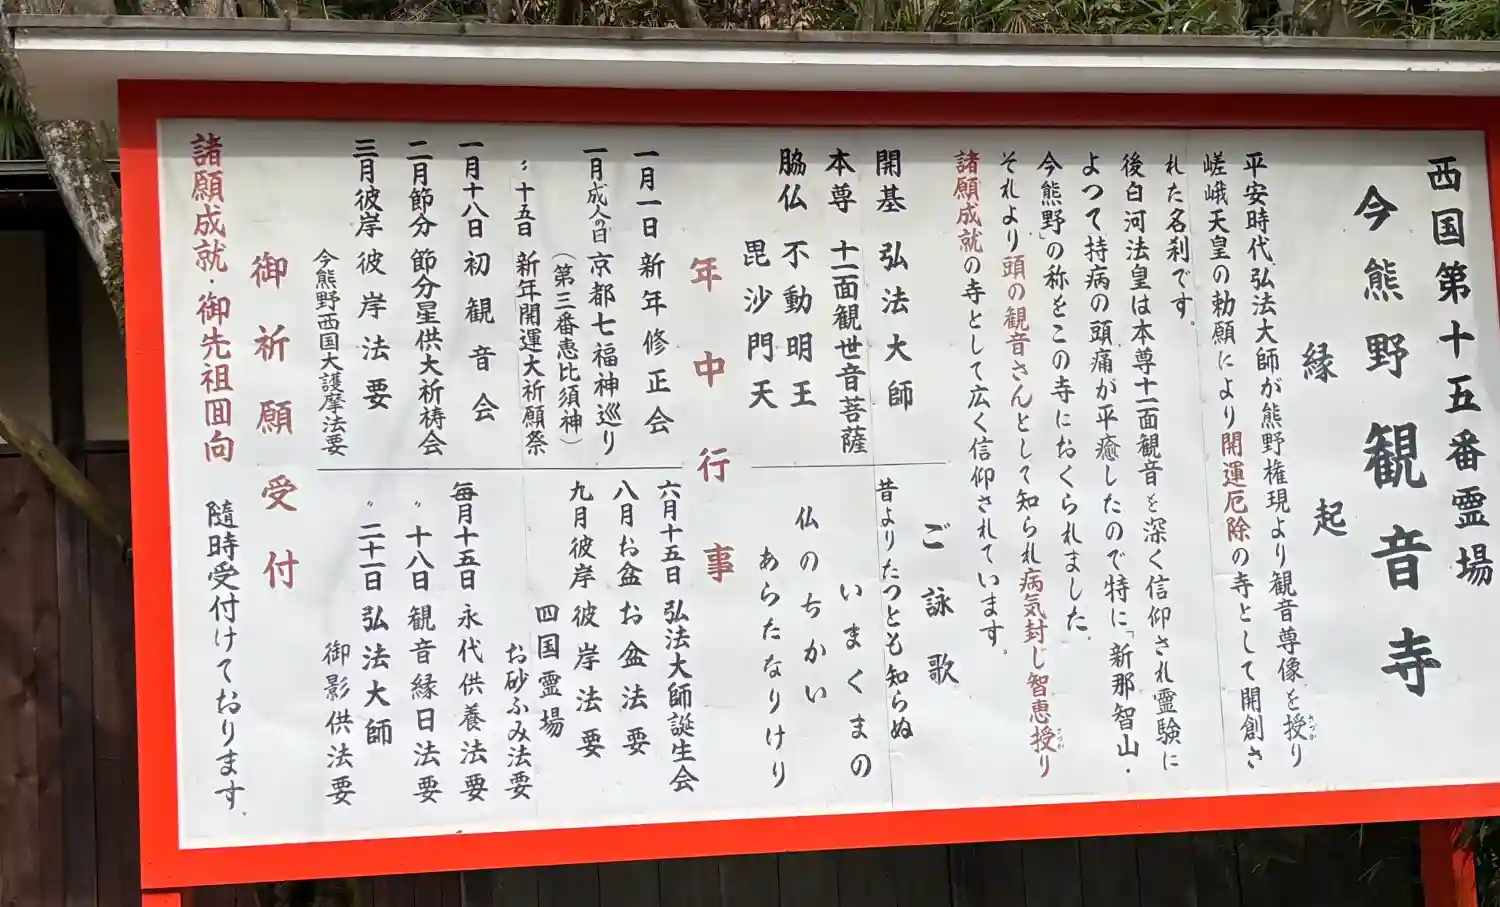 西国第十五番霊場
今熊野観音寺
縁起
平安時代、弘法大師が熊野権現より観音尊像を授り
さづか
嵯峨天皇の勅願により開運厄除の寺として開創さ
れた名刹です。
後白河法皇は本尊十一面観音を深く信仰され霊験に
よつて持病の頭痛が平癒したので特に「新那智山・
今熊野」の称をこの寺におくられました。
それより頭の観音さんとして知られ病気封じ智恵授り
さづか
諸願成就の寺として広く信仰されています。
開基 弘法大師
本尊 十一面観世音菩薩
脇仏 不動明王
毘沙門天
ご詠歌
昔よりたつとも知らぬ
いまくまの
仏のちかい
あらたなりけり
年中行事
一月一日 新年修正会
一月成人の日 京都七福神巡り
(第三番恵比須神)
〃十五日 新年開運大祈願祭
一月十八日 初観音会
二月節分 節分星供大祈祷会
三月彼岸 彼岸法要
今熊野西国大護摩法要
六月十五日 弘法大師誕生会
八月お盆 お盆法要
九月彼岸 彼岸法要
四国霊場
お砂ふみ法要
毎月十五日 永代供養法要
〃十八日 観音縁日法要
〃二十一日 弘法大師
御影供法要
御祈願受付
諸願成就・御先祖回向 隨時受付けております。